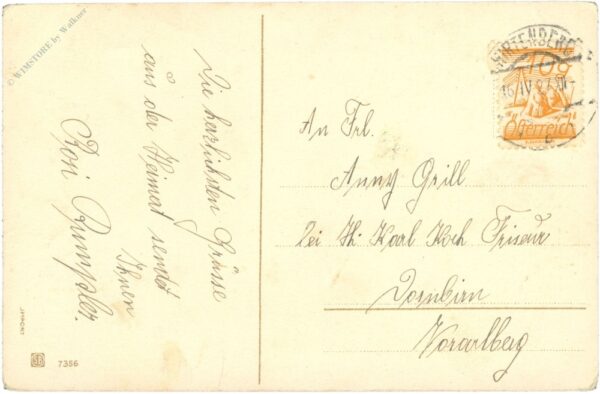 © WIMSTORE by Walkner
Die herzlichsten Grüsse
aus der Heimat sendet
Ihnen
Rosi Rumpler.
HIRTENBERG
16.IV.27
10g
Österreich
An Frl.
Anny Grill
bei H. Karl Koch Friseur
Dornbirn
Vorarlberg
7356